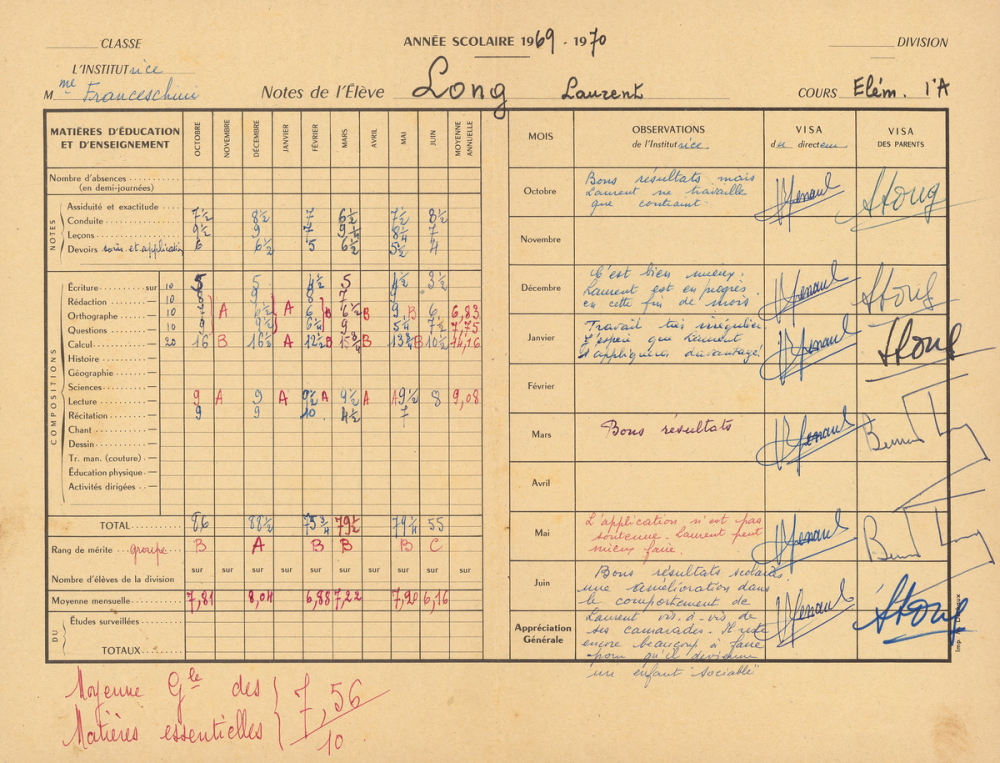 CLASSE
ANNÉE SCOLAIRE 1969 - 1970
DIVISION
L'INSTITUTrice
Mme Franceschini
Notes de l'Élève Long Laurent
COURS Elém. 1°A
MATIÈRES D'ÉDUCATION
ET D'ENSEIGNEMENT
OCTOBRE NOVEMBRE DÉCEMBRE JANVIER FÉVRIER MARS AVRIL MAI JUIN MOYENNE ANNUELLE
Nombre d'absences
(en demi-journées)
NOTES
Assiduité et exactitude
Conduite 7½ 8½ 7 6½ 7½ 8½
Leçons 9½ 9 7
Devoirs soin et application 6 6½ 5 6½ 5½ 4
COMPOSITIONS
Écriture sur 10 5 5 4½ 5 4½ 3½
Rédaction 10
Orthographe 10 A A B B 9 B 6 6,83
Questions 10 9 9½ 6¼ 9 5¼ 7½ 7,75
Calcul 20 16 B 16½ A 12½ B B 13¾ B 10½
Histoire
Géographie
Sciences
Lecture 9 A 9 A 9½ A 9½ A 9½ 8 9,08
Récitation 9 9 10 4½ 7
Chant
Dessin
Tr. man. (couture)
Éducation physique
Activités dirigées
TOTAL 86 88½ 75¾ 79½ 79¼ 55
Rang de mérite groupe B A B B B C
sur sur sur sur sur sur sur sur sur
Nombre d'élèves de la division
Moyenne mensuelle 7,81 8,04 6,88 7,22 7,20 6,16
DU
Études surveillées
TOTAUX
MOIS
OBSERVATIONS
de l'Institutrice
VISA
du directeur
VISA
DES PARENTS
Octobre
Bons résultats mais
Laurent ne travaille
que contraint.
Novembre
Décembre
C'est bien mieux.
Laurent est en progrès
en cette fin de mois
Janvier
Travail très irrégulier
J'espère que Laurent
s'appliquera davantage
Février
Mars
Bons résultats
Avril
Mai
L'application n'est pas
soutenue. Laurent peut
mieux faire.
Juin
Bons résultats scolaires
une amélioration dans
le comportement de
Appréciation
Générale
Laurent vis-à-vis de
ses camarades. Il reste
encore beaucoup à faire
pour qu'il devienne
"un enfant sociable"
Moyenne Gle des
Matières essentielles
7,56
10